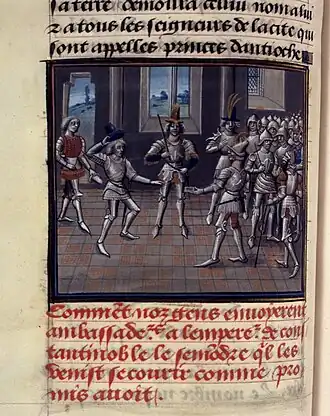 sa terre demoura celui nom a lui
⁊ a tous les seigneurs de la cite qui
sont appelles princes dantioche
Comment noz gens enuoyerent
ambassade a lempere de con
stantinoble le semondre ql les
venist secourir comme pro
mis auoit.